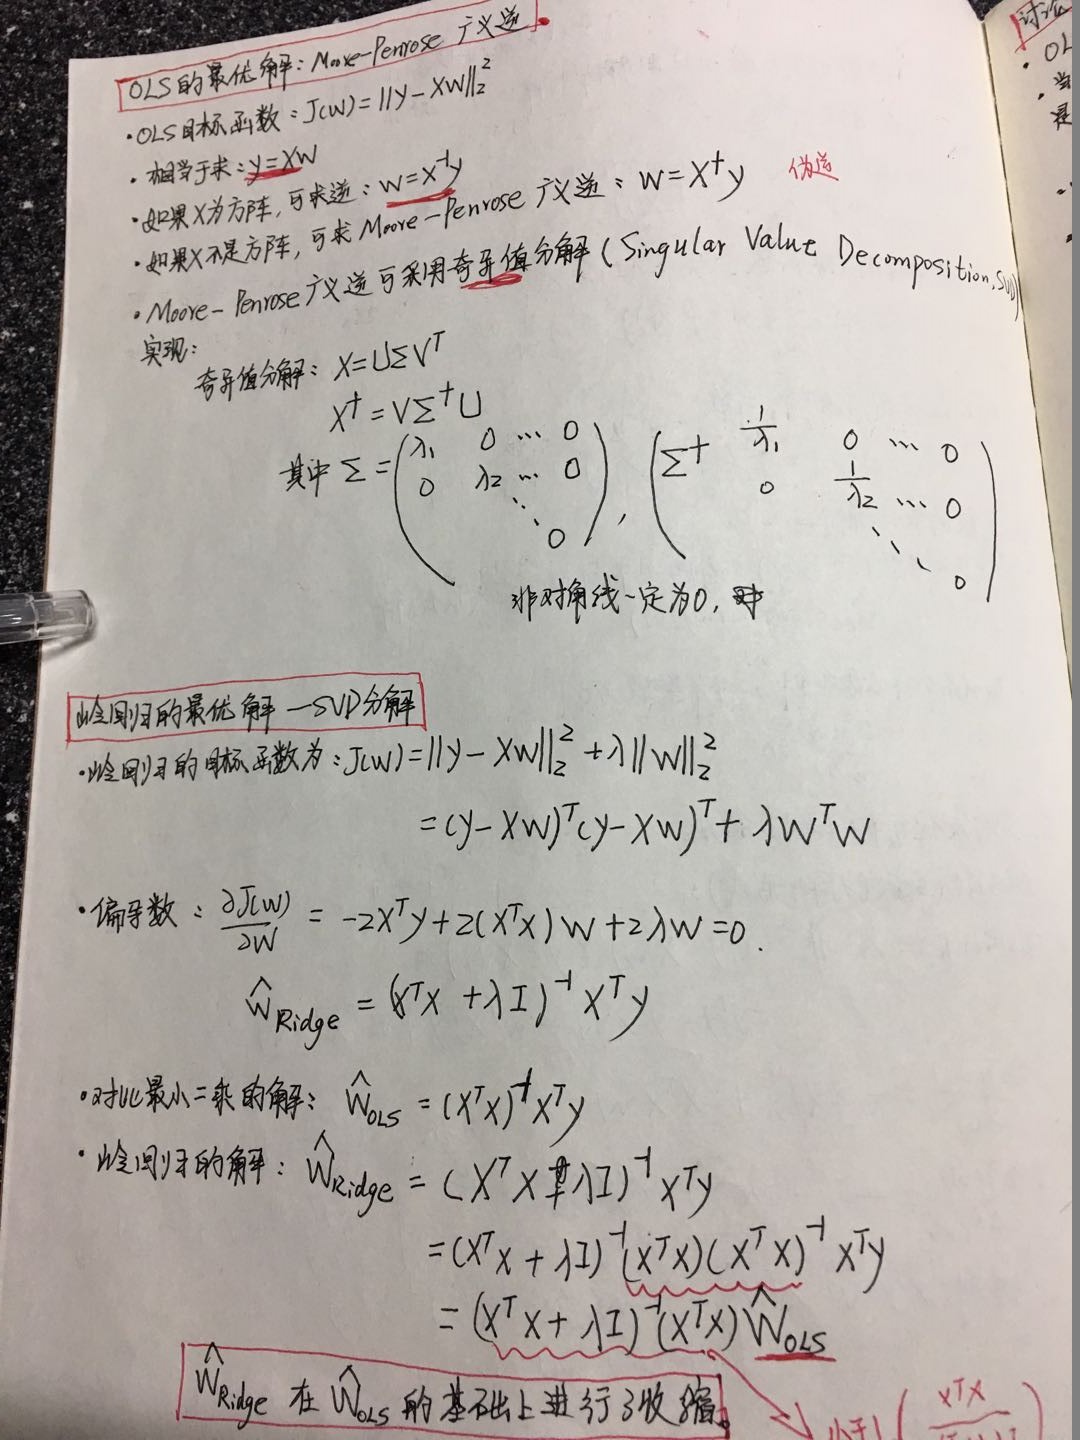 OLS的最优解：Moore-Penrose 广义逆
·OLS目标函数：J(W)=||y-XW||₂²
·相当于求：y=XW
·如果X为方阵，可求逆：W=X⁻¹y
·如果X不是方阵，可求Moore-Penrose 广义逆：W=X†y 伪逆
·Moore-Penrose广义逆可采用奇异值分解(Singular Value Decomposition,SVD)
实现：
奇异值分解：X=UΣVᵀ
X†=VΣ†U
其中Σ=(λ₁ 0 … 0
0 λ₂ … 0
⋱
0),
(Σ† 1/λ₁ 0 … 0
0 1/λ₂ … 0
⋱
0)
非对角线一定为0，
岭回归的最优解—SVD分解
·岭回归的目标函数为：J(W)=||y-XW||₂²+λ||W||₂²
=(y-XW)ᵀ(y-XW)ᵀ+λWᵀW
·偏导数：∂J(W)/∂W=-2Xᵀy+2(XᵀX)W+2λW=0.
Ŵ_Ridge=(XᵀX+λI)⁻¹Xᵀy
·对比最小二乘的解：Ŵ_OLS=(XᵀX)⁻¹Xᵀy
·岭回归的解：Ŵ_Ridge=(XᵀX+λI)⁻¹Xᵀy
=(XᵀX+λI)⁻¹(XᵀX)(XᵀX)⁻¹Xᵀy
=(XᵀX+λI)⁻¹(XᵀX)Ŵ_OLS
Ŵ_Ridge在Ŵ_OLS的基础上进行了收缩。
小于1(XᵀX
讨论
·OL
·当
是